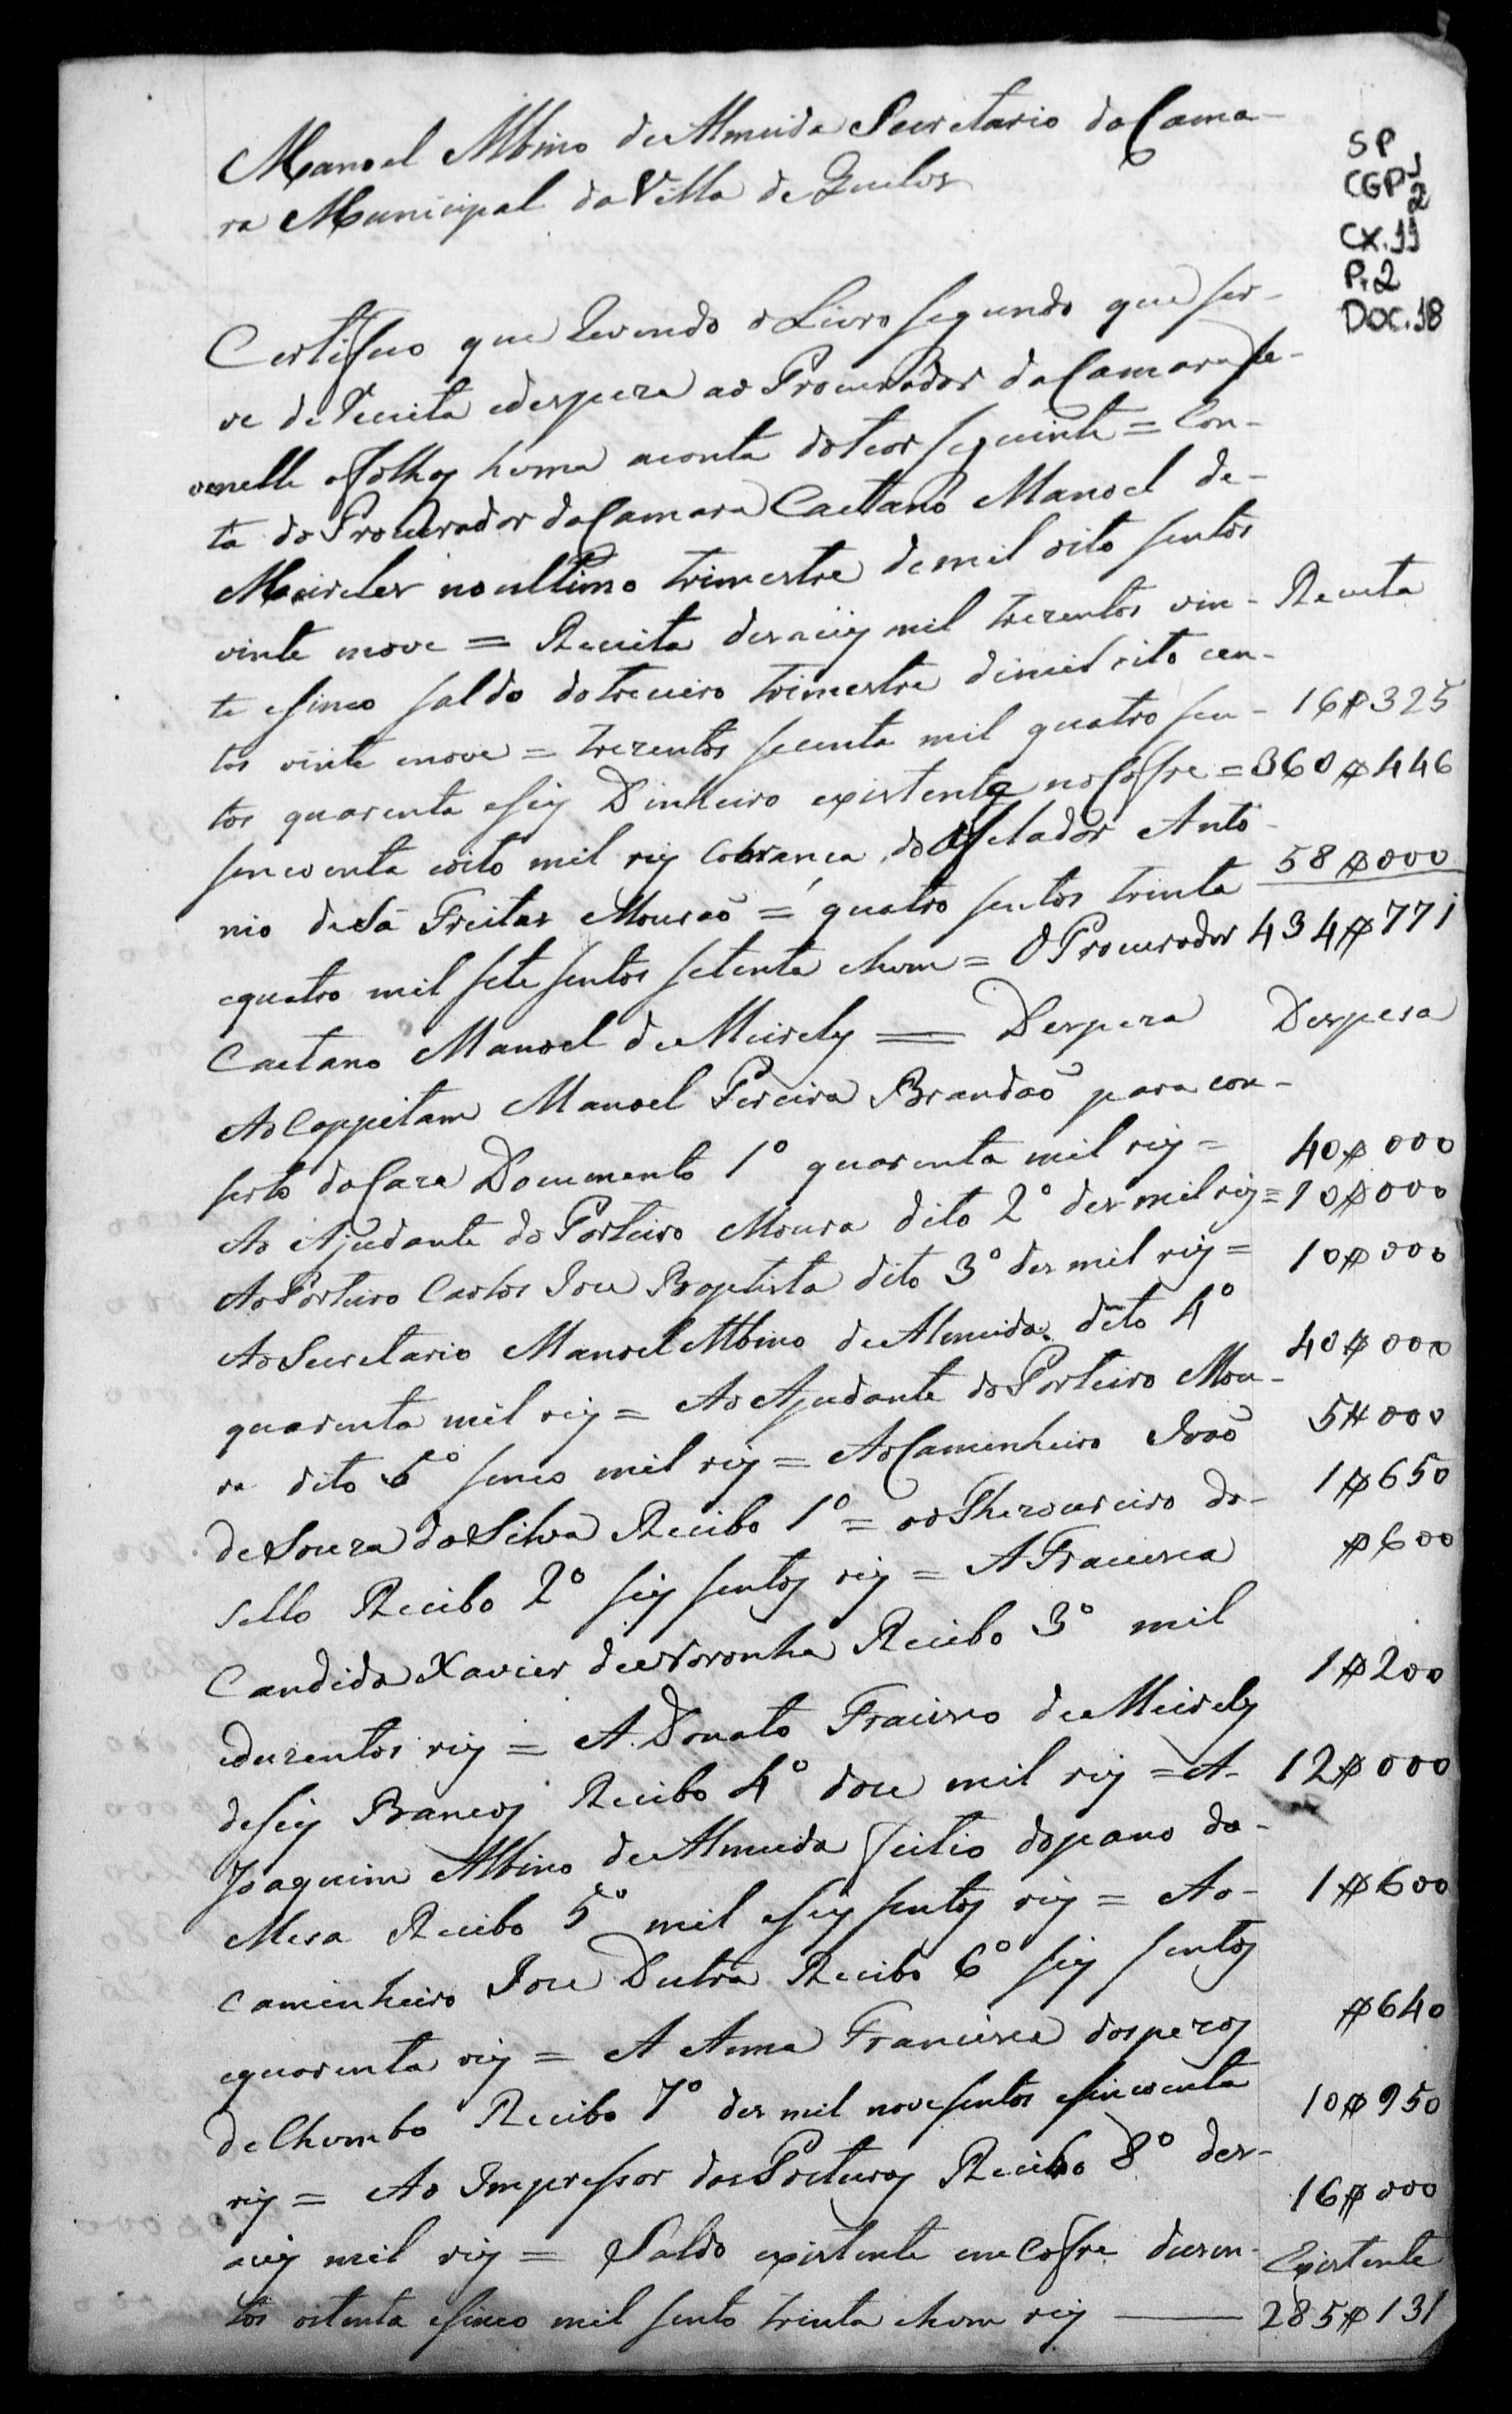 Manoel Albino de Almeida Secretario da Cama-
ra Municipal da Villa de Queluz
SP
CGP 1
2
CX. 11
P. 2
DOC. 18
Certifico que Revendo o Livro segundo que ser-
ve de Receita edespeza ao Procurador da Camara se-
ve nelle afolhas huma aconta doteor seguinte = Con-
ta do Procurador da Camara Caetano Manoel de-
Meireles no ultimo trimestre de mil oito sentos
vinte enove = Receita deraseis mil trezentos vin- Receita
te esinco saldo do treceiro trimestre demil oito cen-
tos vinte enove = trezentos secenta mil quatro sen- 16$325
tos quarenta eseis Dinheiro existente no Cofre = 360$446
sincoenta eoito mil reis cobranca do Afelador Anto-
nio de Sá Freitas Mouraõ = quatro sentos trinta 58$000
equatro mil sete sentos setenta ehum = O Procurador 434$771
Caetano Manoel de Meireles = Despeza Despesa
Ao Cappitam Manoel Pereira Brandaõ para con-
serto da Caza Documento 1º quarenta mil reis = 40$000
Ao Ajudante do Porteiro Moura dito 2º des mil reis = 10$000
Ao Porteiro Carlos Joze Baptista dito 3º des mil reis = 10$000
Ao Secretario Manoel Albino de Almeida dito 4º
quarenta mil reis = Ao Ajudante do Porteiro Mou- 40$000
ra dito 5º sinco mil reis = Ao Caminheiro Joaõ 5$000
de Souza da Silva Recibo 1º = ao Thezoureiro do- 1$650
sello Recibo 2º seis sentos reis = A Francisca $600
Candida Xavier de Noronha Recibo 3º mil
eduzentos reis = A Donato Francisco de Meireles 1$200
deseis Bancos Recibo 4º doze mil reis = A- 12$000
Joaquim Albino de Almeida feitio dopano da-
Mesa Recibo 5º mil eseis sentos reis = Ao- 1$600
Caminheiro Joze Dutra Recibo 6º seis sentos
equarenta reis = A Anna Francisca dospezos $640
de Chumbo Recibo 7º des mil novesentos esincoenta 10$950
reis = Ao Impressor das Posturas Recibo 8º des-
aseis mil reis = Saldo existente em Cofre duzen- 16$000
Existente
tos oitenta esinco mil sento trinta ehum reis 285$131